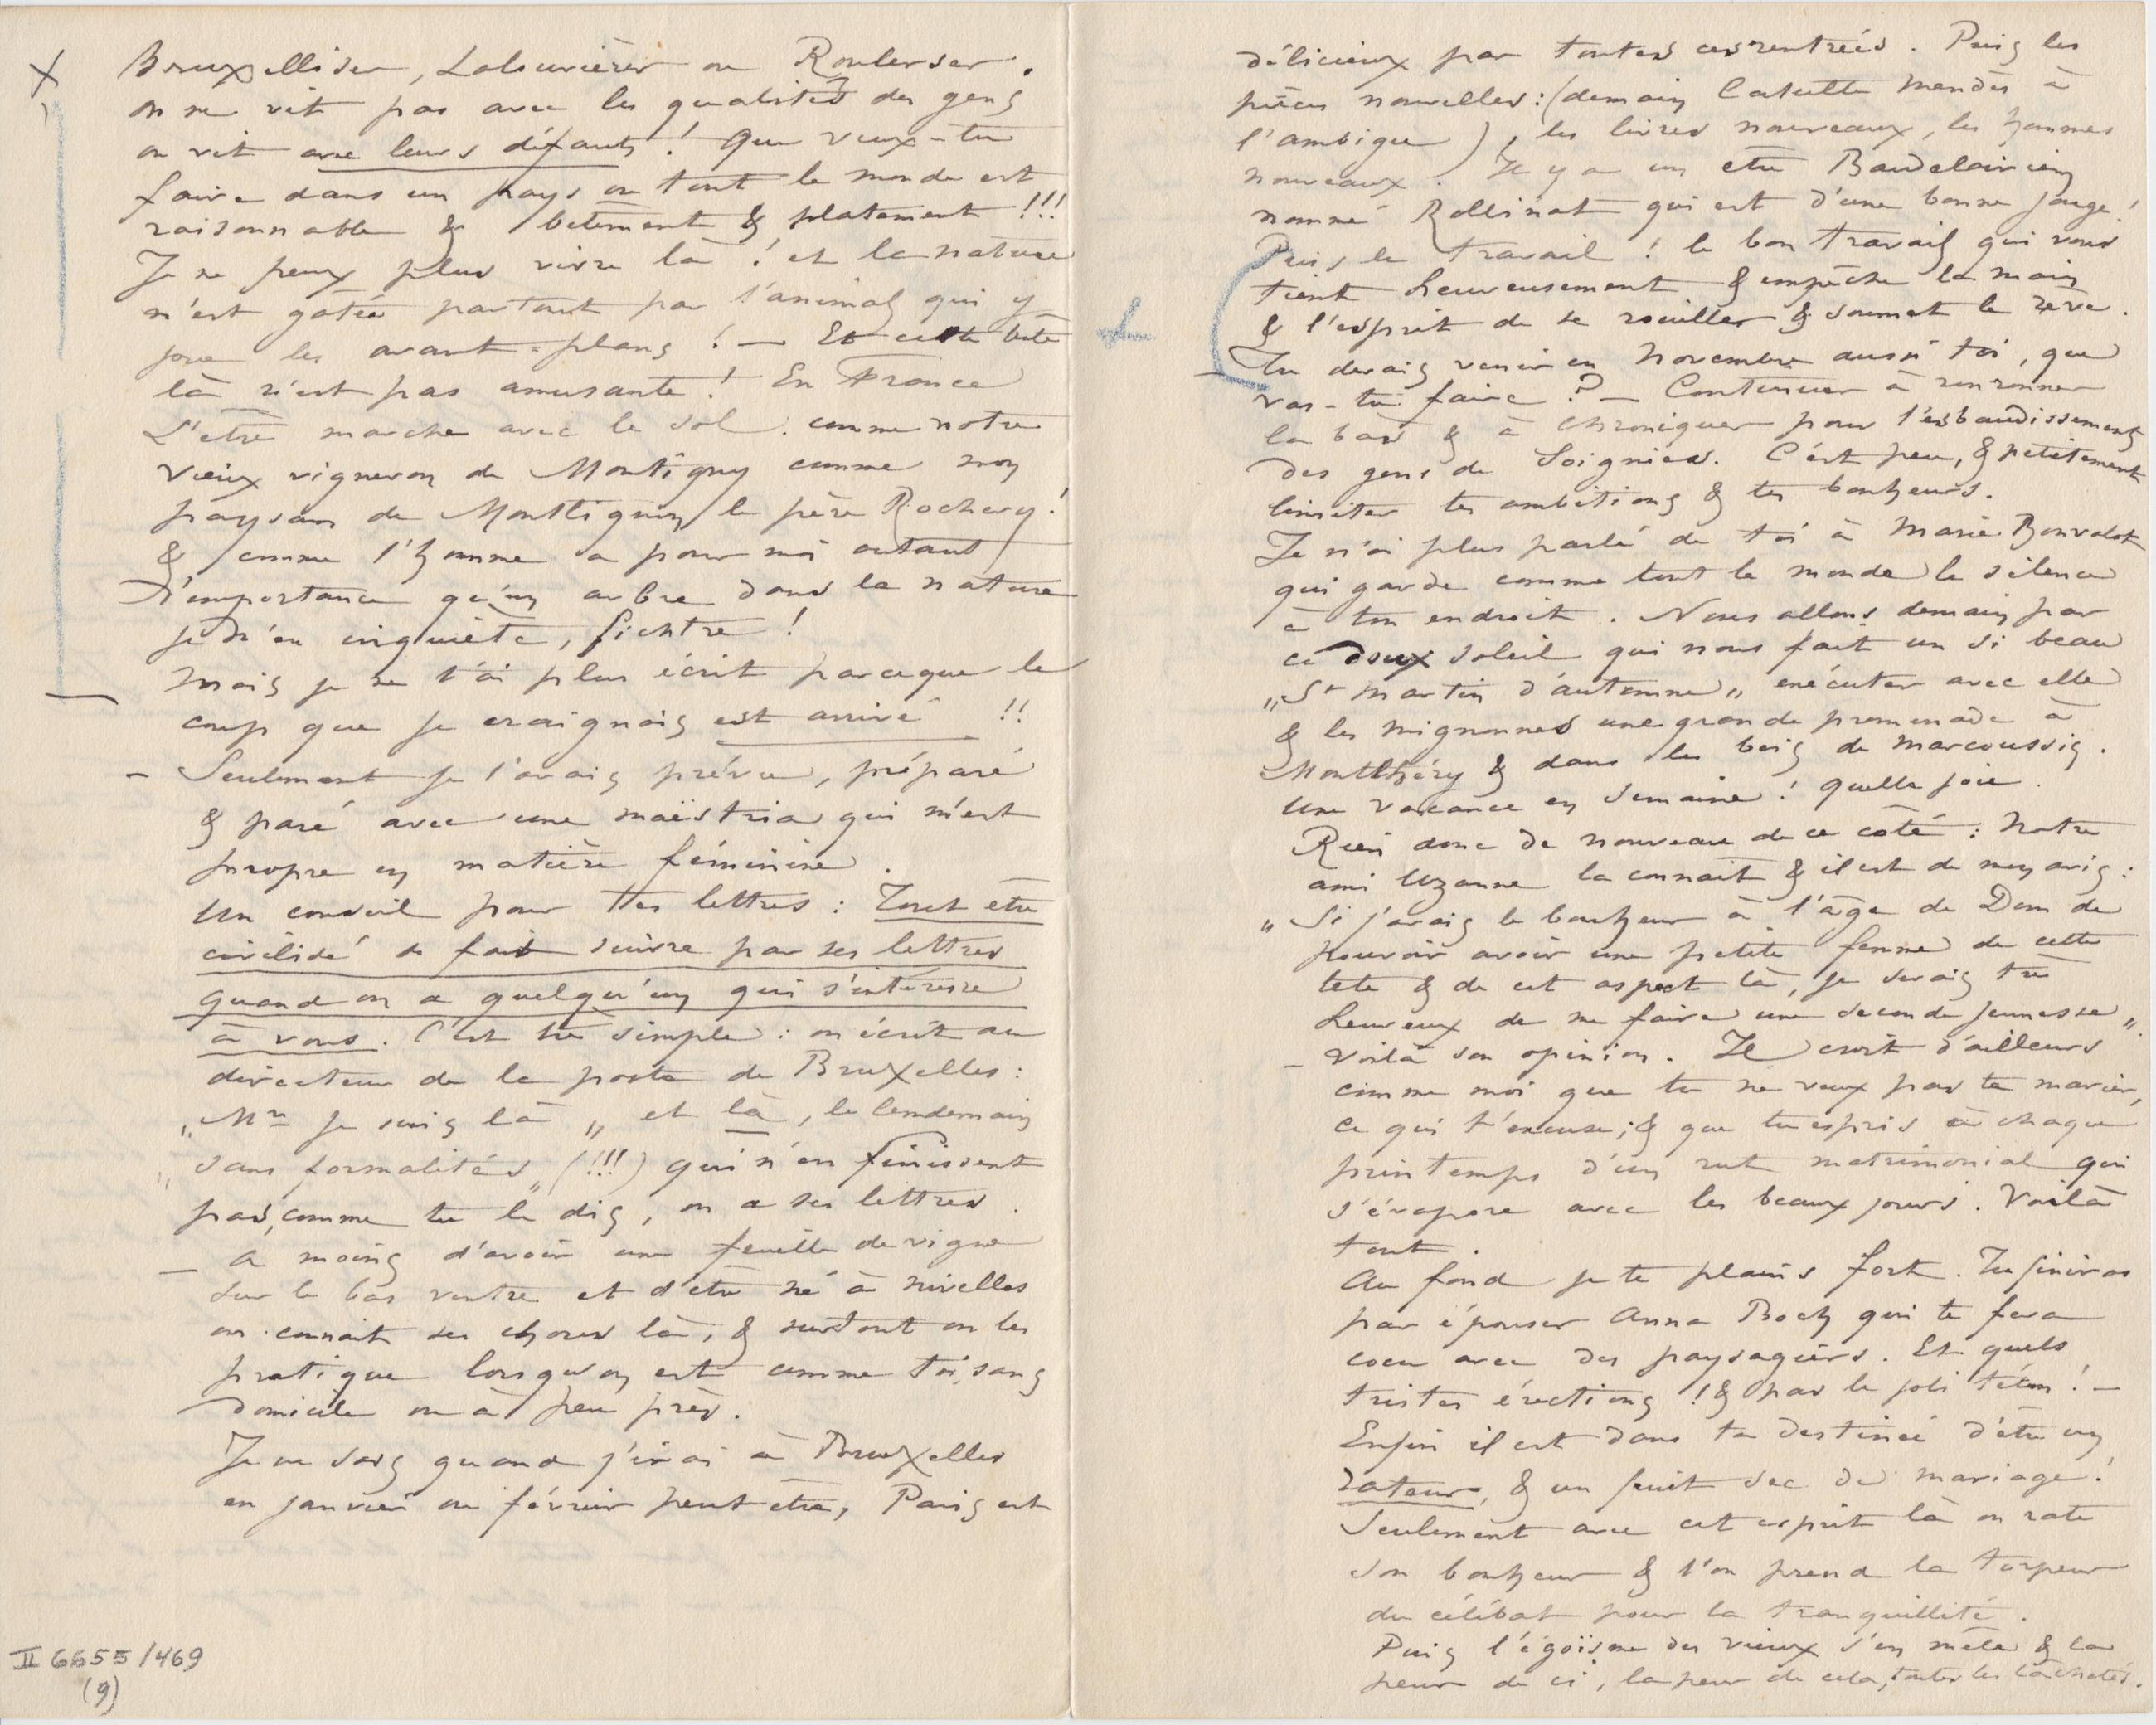 Bruxelliser, Lalouvièrer ou Roulerser.
on ne vit pas avec les qualités des gens
on vit avec leurs défauts ! Que veux-tu
faire dans un pays où tout le monde est
raisonnable & bêtement & platement !!!
Je ne peux plus vivre là ! et la nature
m'est gâtée partout par l'animal qui y
pose les avant-plans ! — Et cette bête
là n'est pas amusante ! En France
L'être marche avec le sol. comme notre
vieux vigneron de Montigny comme mon
paysan de Montligny le père Rochery !
& comme l'homme a pour moi autant
d'importance qu'un arbre dans la nature
je m'en inquiète, fichtre !
Mais je ne t'ai plus écrit parceque le
coup que je craignais est arrivé !!
– Seulement je l'avais prévu, préparé
& paré avec une maëstria qui m'est
propre en matière féminine.
Un conseil pour tes lettres : Tout être
civilisé se fait suivre par ses lettres
quand on a quelqu'un qui s'intéresse
à vous. C'est très simple : on écrit au
directeur de la poste de Bruxelles :
„Mr je suis là„ et là, le lendemain
„sans formalités„ (!!!) qui n'en finissent
pas, comme tu le dis, on a ses lettres.
— a moins d'avoir une feuille de vigne
sur le bas ventre et d'être né à nivelles
on connait ces choses là, & surtout on les
pratique lorsqu'on est comme toi, sans
domicile ou à peu près.
Je ne sais quand j'irai à Bruxelles
en janvier ou février peut être, Paris est
II 6655/469
(9)
délicieux par toutes ces rentrées. Puis les
pièces nouvelles : (demain Catulle Mendès à
l'ambigu), les livres nouveaux, les hommes
nouveaux. Il y a un être Baudelairien
nommé Rollinat qui est d'une bonne jauge !
Puis le travail ! le bon travail qui vous
tient heureusement & empêche la main
& l'esprit de se rouiller & soumet le rêve.
— Tu devais venir en Novembre aussi toi, que
vas-tu faire ? — Continuer à ronronner
la bas & à chroniquer pour l'esbaudissement
des gens de Soignies. C'est peu, & petitement
limiter tes ambitions & tes bonheurs.
Je n'ai plus parlé de toi à Marie Bonvalot
qui garde comme tout le monde le silence
à ton endroit. Nous allons demain par
ce doux soleil qui nous fait un si beau
„St Martin d'automne„ exécuter avec elle
& les mignonnes une grande promenade à
Montlhéry & dans les bois de Marcoussis.
Une vacance en semaine ! quelle joie.
Rien donc de nouveau de ce coté : Notre
ami Uzanne la connait & il est de mon avis :
„Si j'avais le bonheur à l'âge de Dom de
pouvoir avoir une petite femme de cette
tête & de cet aspect là, je serais très
heureux de me faire une seconde jeunesse„
– Voilà son opinion. Il croit d'ailleurs
comme moi que tu ne veux pas te marier,
ce qui t'excuse ; & que tu es pris à chaque
printemps d'un rut matrimonial qui
s'évapore avec les beaux jours. Voilà
tout.
Au fond je te plains fort. Tu finiras
par épouser Anna Boch qui te fera
cocu avec des paysagiers. Et quels
tristes érections ! & pas le joli téton ! –
Enfin il est dans ta destinée d'être un
rateur, & un fruit sec de mariage !
Seulement avec cet esprit là on rate
son bonheur & l'on prend la torpeur
du célibat pour la tranquillité.
Puis l'égoïsme des vieux s'en mêle & la
peur de ci, la peur de cela, toutes les lâchetés.